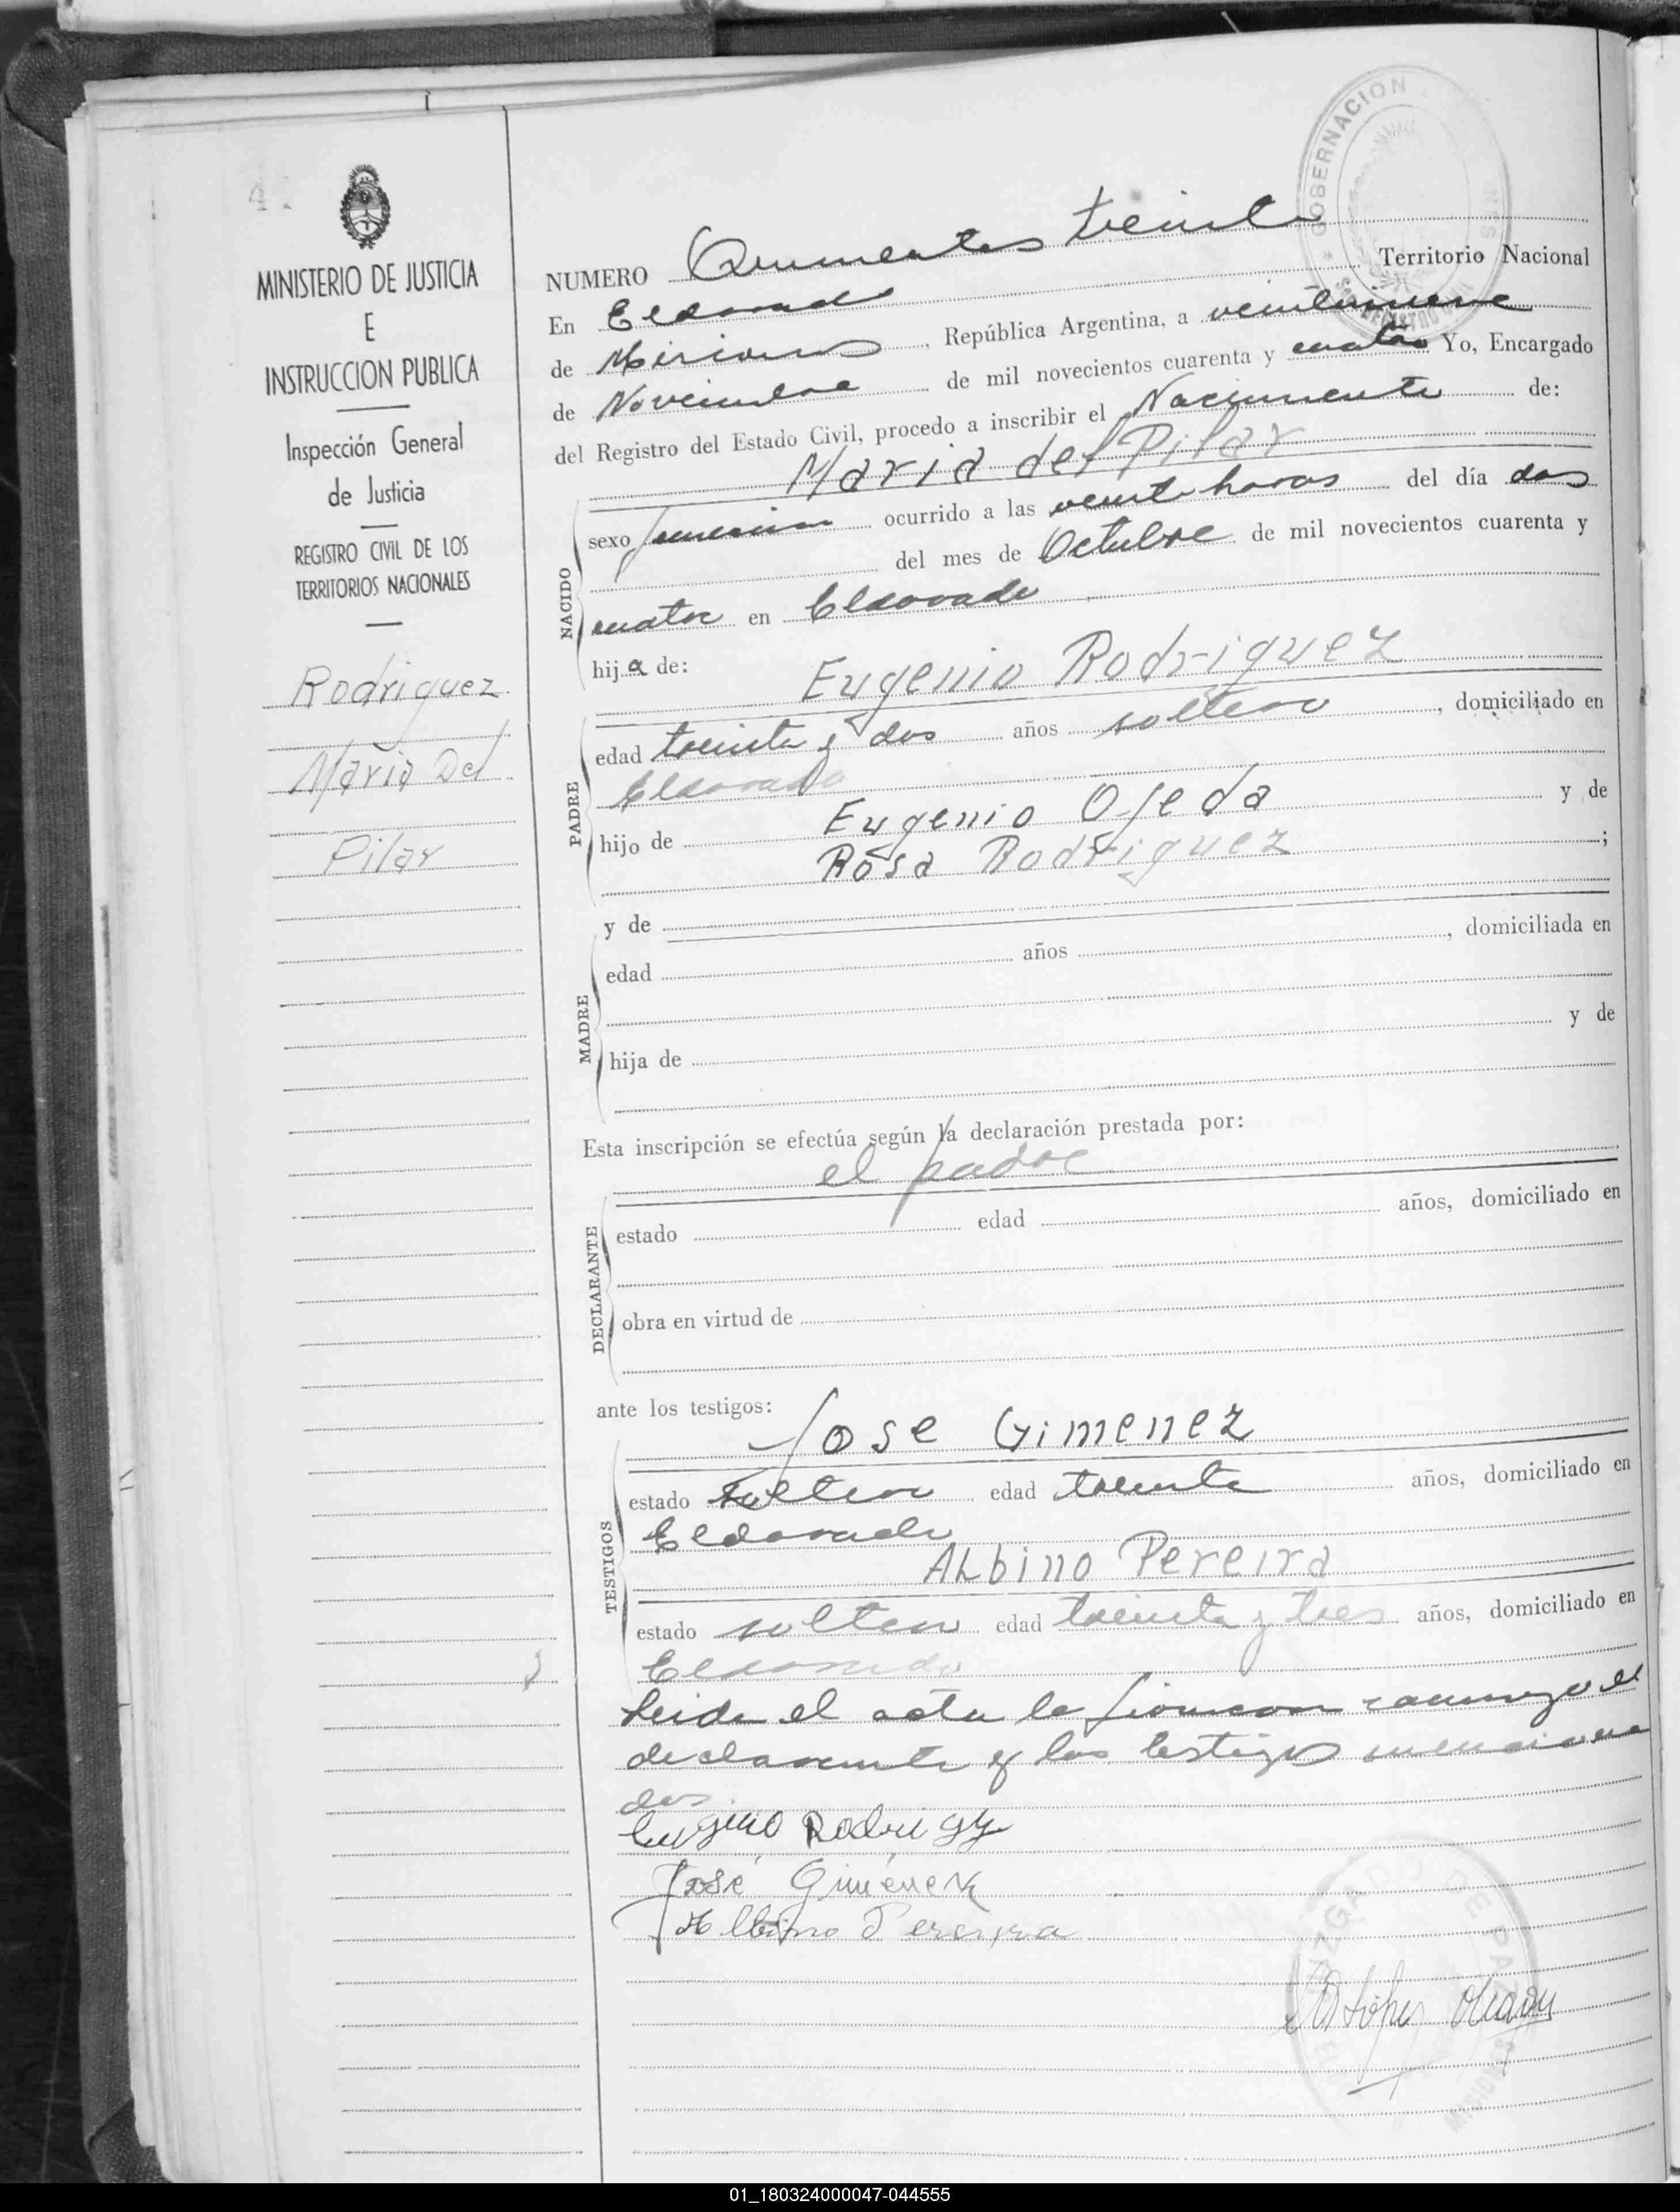 MINISTERIO DE JUSTICIA
E
INSTRUCCION PUBLICA
Inspección General
de Justicia
REGISTRO CIVIL DE LOS
TERRITORIOS NACIONALES
Rodriguez
Maria Del
Pilar
GOBERNACION
NUMERO Quinientos treinta
En Eldorado Territorio Nacional
de Misiones, República Argentina, a veintinueve
de Noviembre de mil novecientos cuarenta y cuatro Yo, Encargado
del Registro del Estado Civil, procedo a inscribir el Nacimiento de:
Maria del Pilar
NACIDO
sexo femenino ocurrido a las veinte horas del día dos
del mes de Octubre de mil novecientos cuarenta y
cuatro en Eldorado
hija de: Eugenio Rodriguez
PADRE
edad treinta y dos años soltero, domiciliado en
Eldorado
hijo de Eugenio Ojeda y de
Rosa Rodriguez;
MADRE
y de
edad años, domiciliada en
hija de y de
Esta inscripción se efectúa según la declaración prestada por:
el padre
DECLARANTE
estado edad años, domiciliado en
obra en virtud de
ante los testigos:
Jose Gimenez
TESTIGOS
estado soltero edad treinta años, domiciliado en
Eldorado
ALbino Pereira
estado soltero edad treinta y tres años, domiciliado en
Eldorado
Leida el acta la firman conmigo el
declarante y los testigos menciona
dos
Eugenio Rodriguez
José Giménez
Albino Pereyra
JUZGADO DE PAZ
01_180324000047-044555